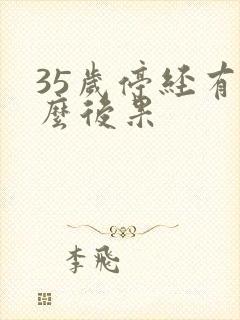 35歲停經有
麼後果
李飛